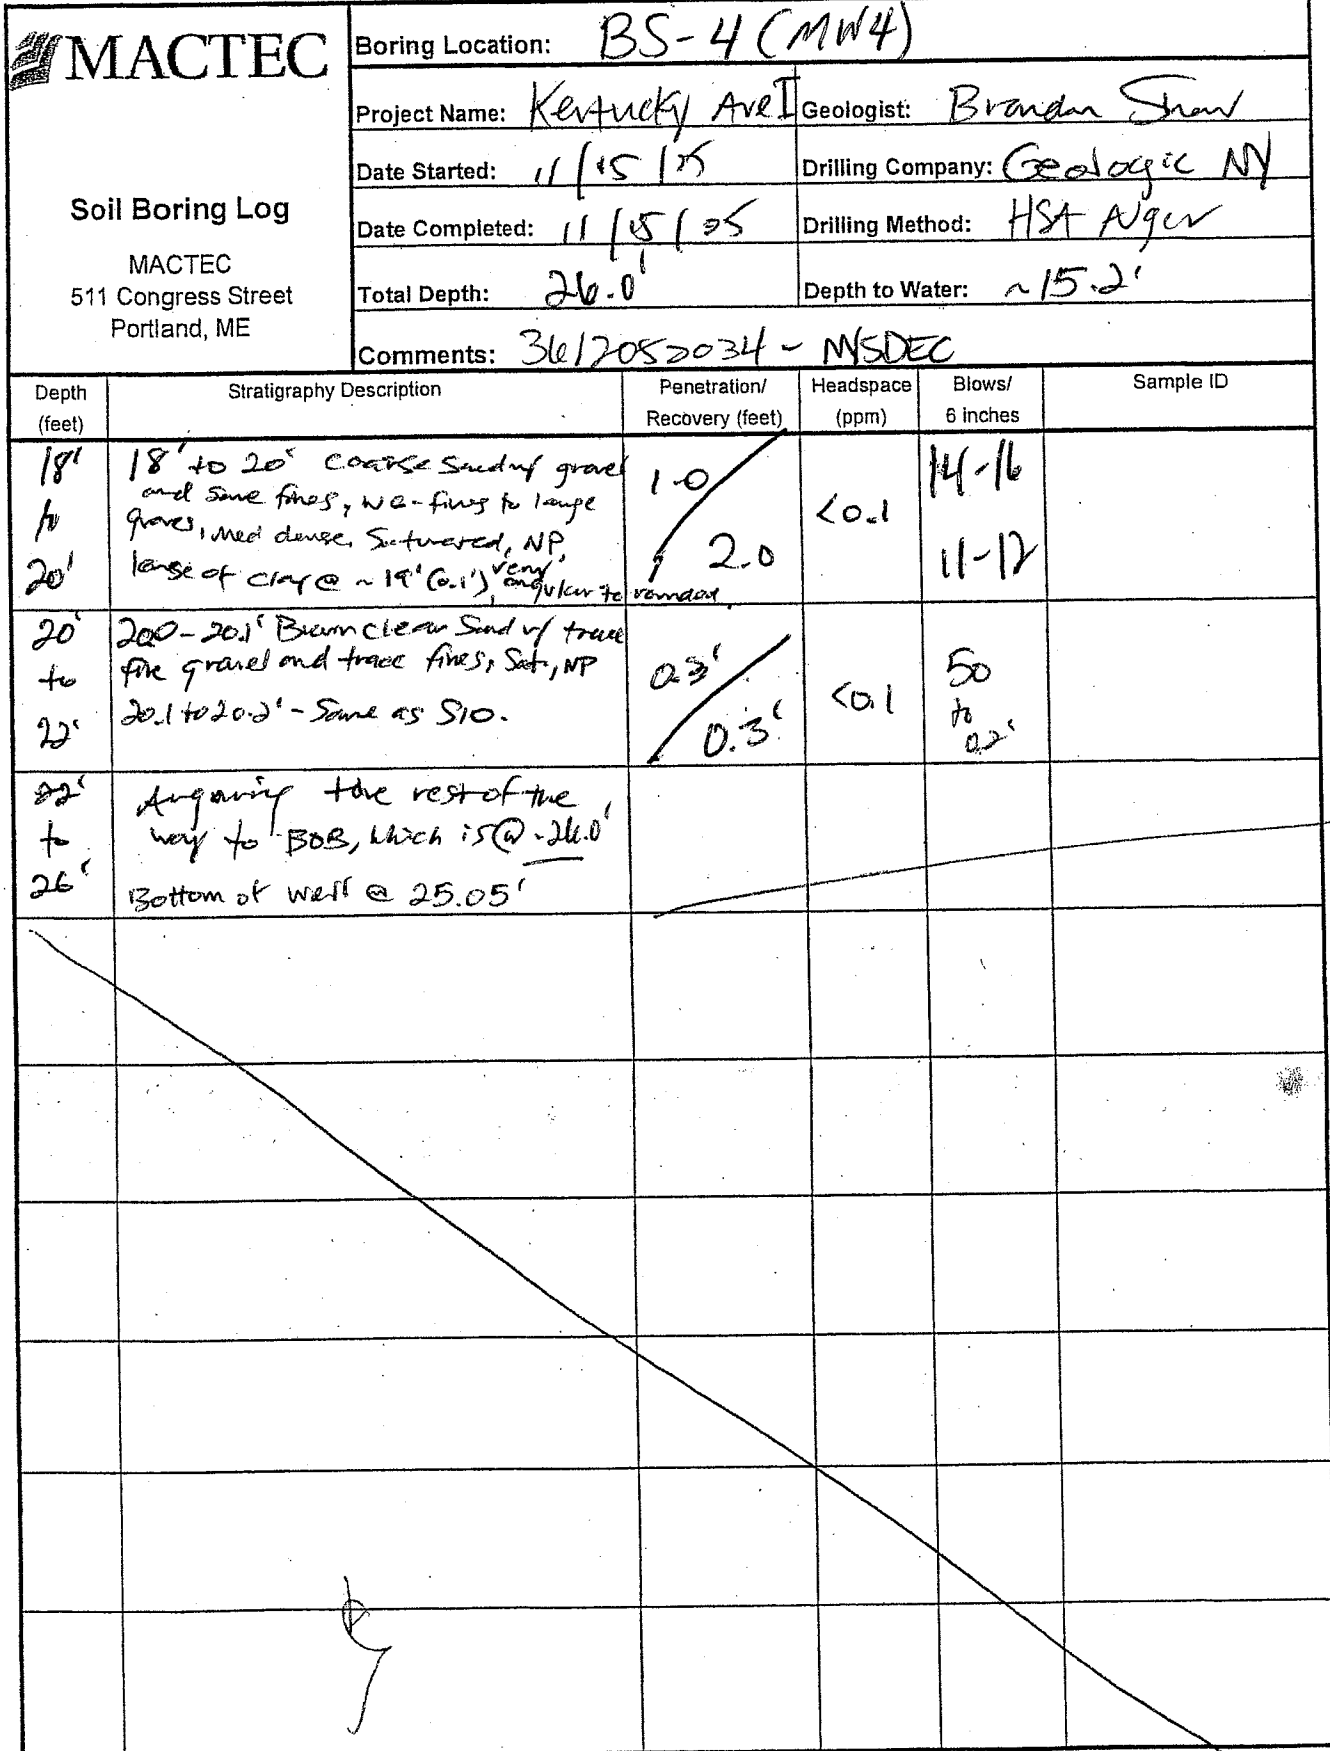 MACTEC
Soil Boring Log
MACTEC
511 Congress Street
Portland, ME
Boring Location: BS-4 (MW4)
Project Name: Kentucky Ave I
Geologist: Brandon Shaw
Date Started: 11/15/05
Drilling Company: Geologic NY
Date Completed: 11/15/05
Drilling Method: HSA Auger
Total Depth: 26.0'
Depth to Water: ~15.2'
Comments: 3612052034 - NYSDEC
Depth
(feet)
Stratigraphy Description
Penetration/
Recovery (feet)
Headspace
(ppm)
Blows/
6 inches
Sample ID
18'
to
20'
18' to 20' Coarse Sand w/ gravel
and some fines, WG-fines to large
gravel, Med dense, Saturated, NP,
lense of clay @ ~19' (0.1'), very
angular to rounded.
1.0/
2.0
<0.1
14-16
11-12
20'
to
22'
20.0-20.1' Brown clean Sand w/ trace
fine gravel and trace fines, Sat, NP
20.1 to 20.2' - Same as S10.
0.3'/
0.3'
<0.1
50
to
0.2'
22'
to
26'
Augering the rest of the
way to BOB, which is @ -26.0'
Bottom of well @ 25.05'